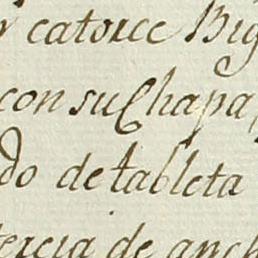 catorce Big
con su Chapa,
do de tableta
tercia de anch